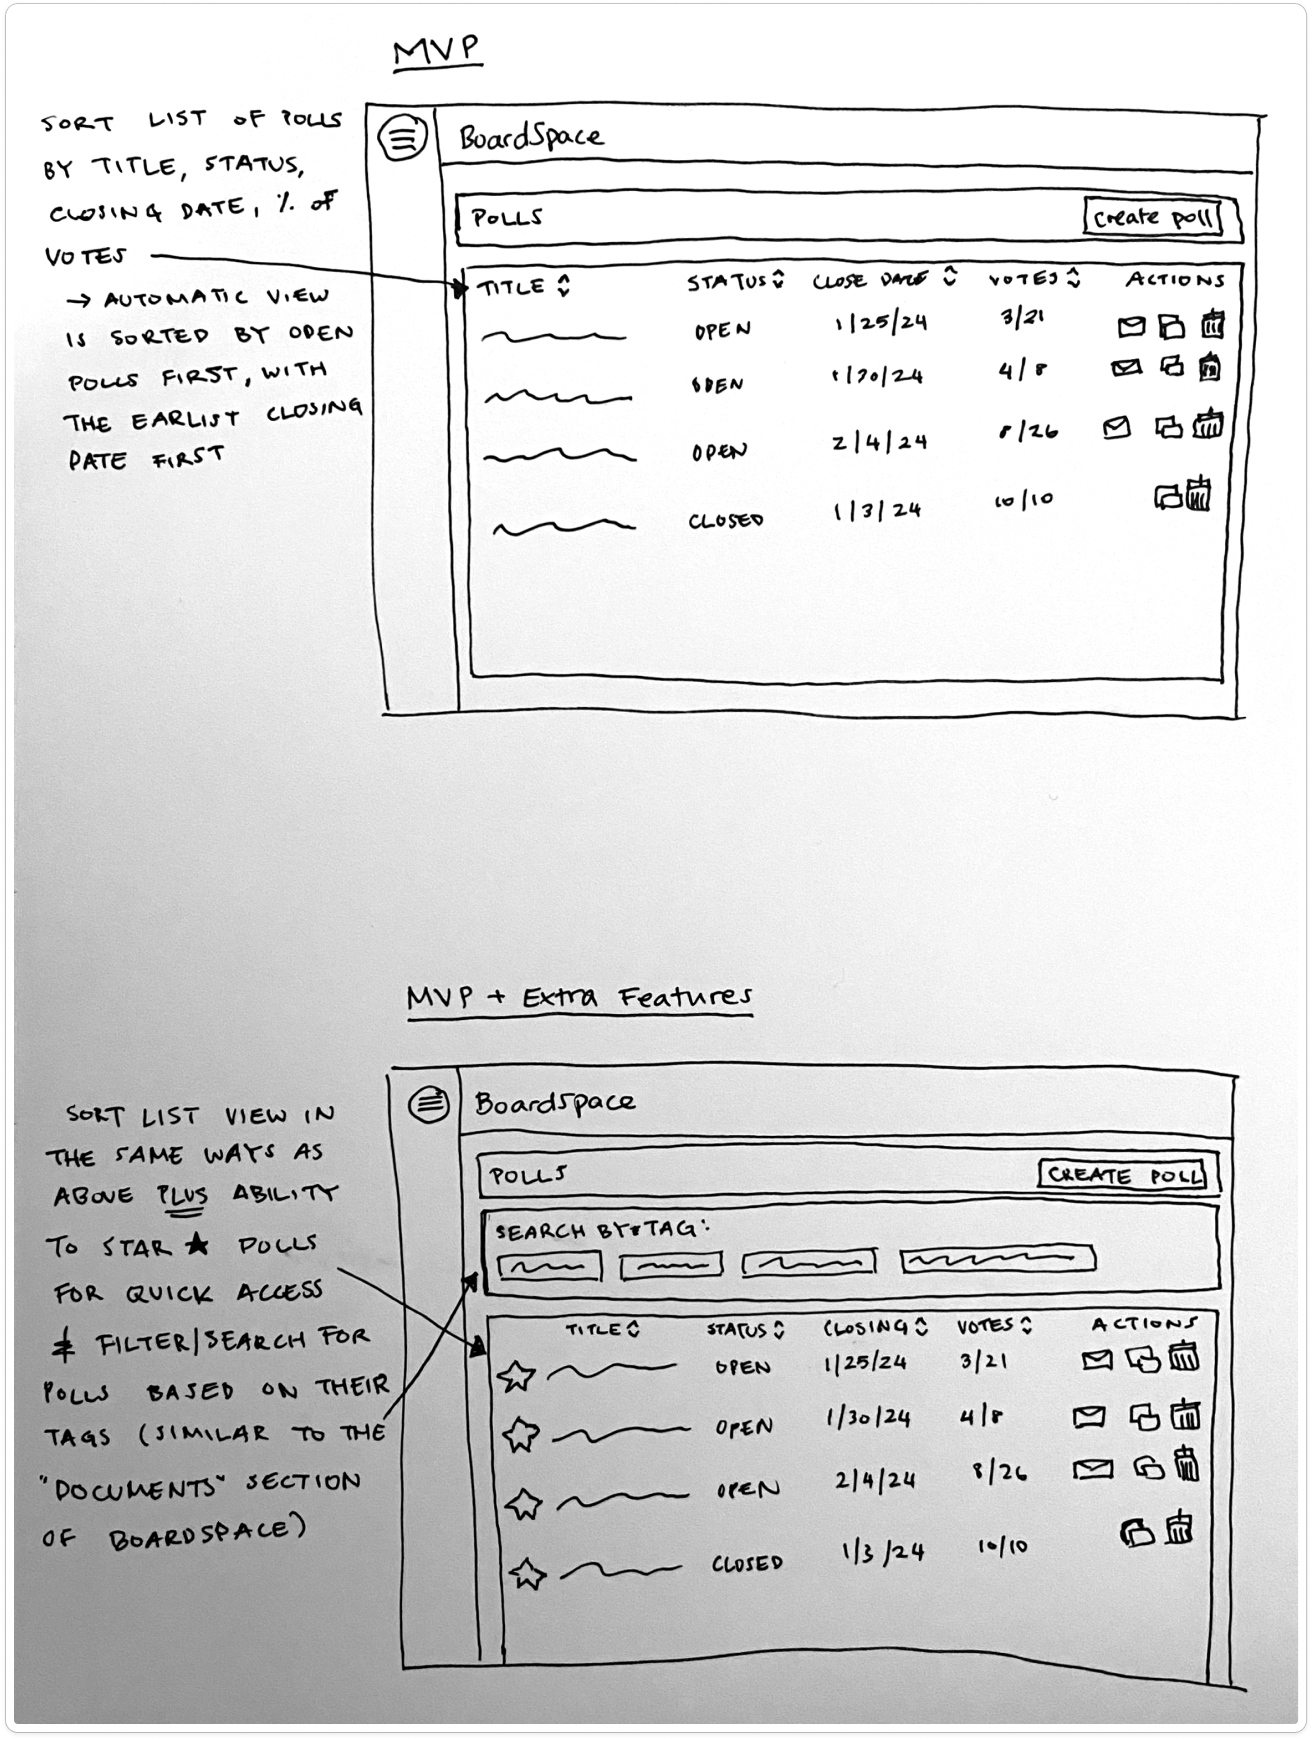 MVP
SORT LIST OF POLLS
BY TITLE, STATUS,
CLOSING DATE, % OF
VOTES
→ AUTOMATIC VIEW
IS SORTED BY OPEN
POLLS FIRST, WITH
THE EARLIST CLOSING
DATE FIRST
BoardSpace
POLLS create poll
TITLE STATUS CLOSE DATE VOTES ACTIONS
OPEN 1/25/24 3/21
OPEN 4/8
OPEN 2/4/24 8/26
CLOSED 1/3/24 10/10
MVP + Extra Features
SORT LIST VIEW IN
THE SAME WAYS AS
ABOVE PLUS ABILITY
TO STAR ★ POLLS
FOR QUICK ACCESS
& FILTER/SEARCH FOR
POLLS BASED ON THEIR
TAGS (SIMILAR TO THE
"DOCUMENTS" SECTION
OF BOARDSPACE)
BoardSpace
POLLS CREATE POLL
SEARCH BY TAG:
TITLE STATUS CLOSING VOTES ACTIONS
OPEN 1/25/24 3/21
OPEN 1/30/24 4/8
OPEN 2/4/24 8/26
CLOSED 1/3/24 10/10